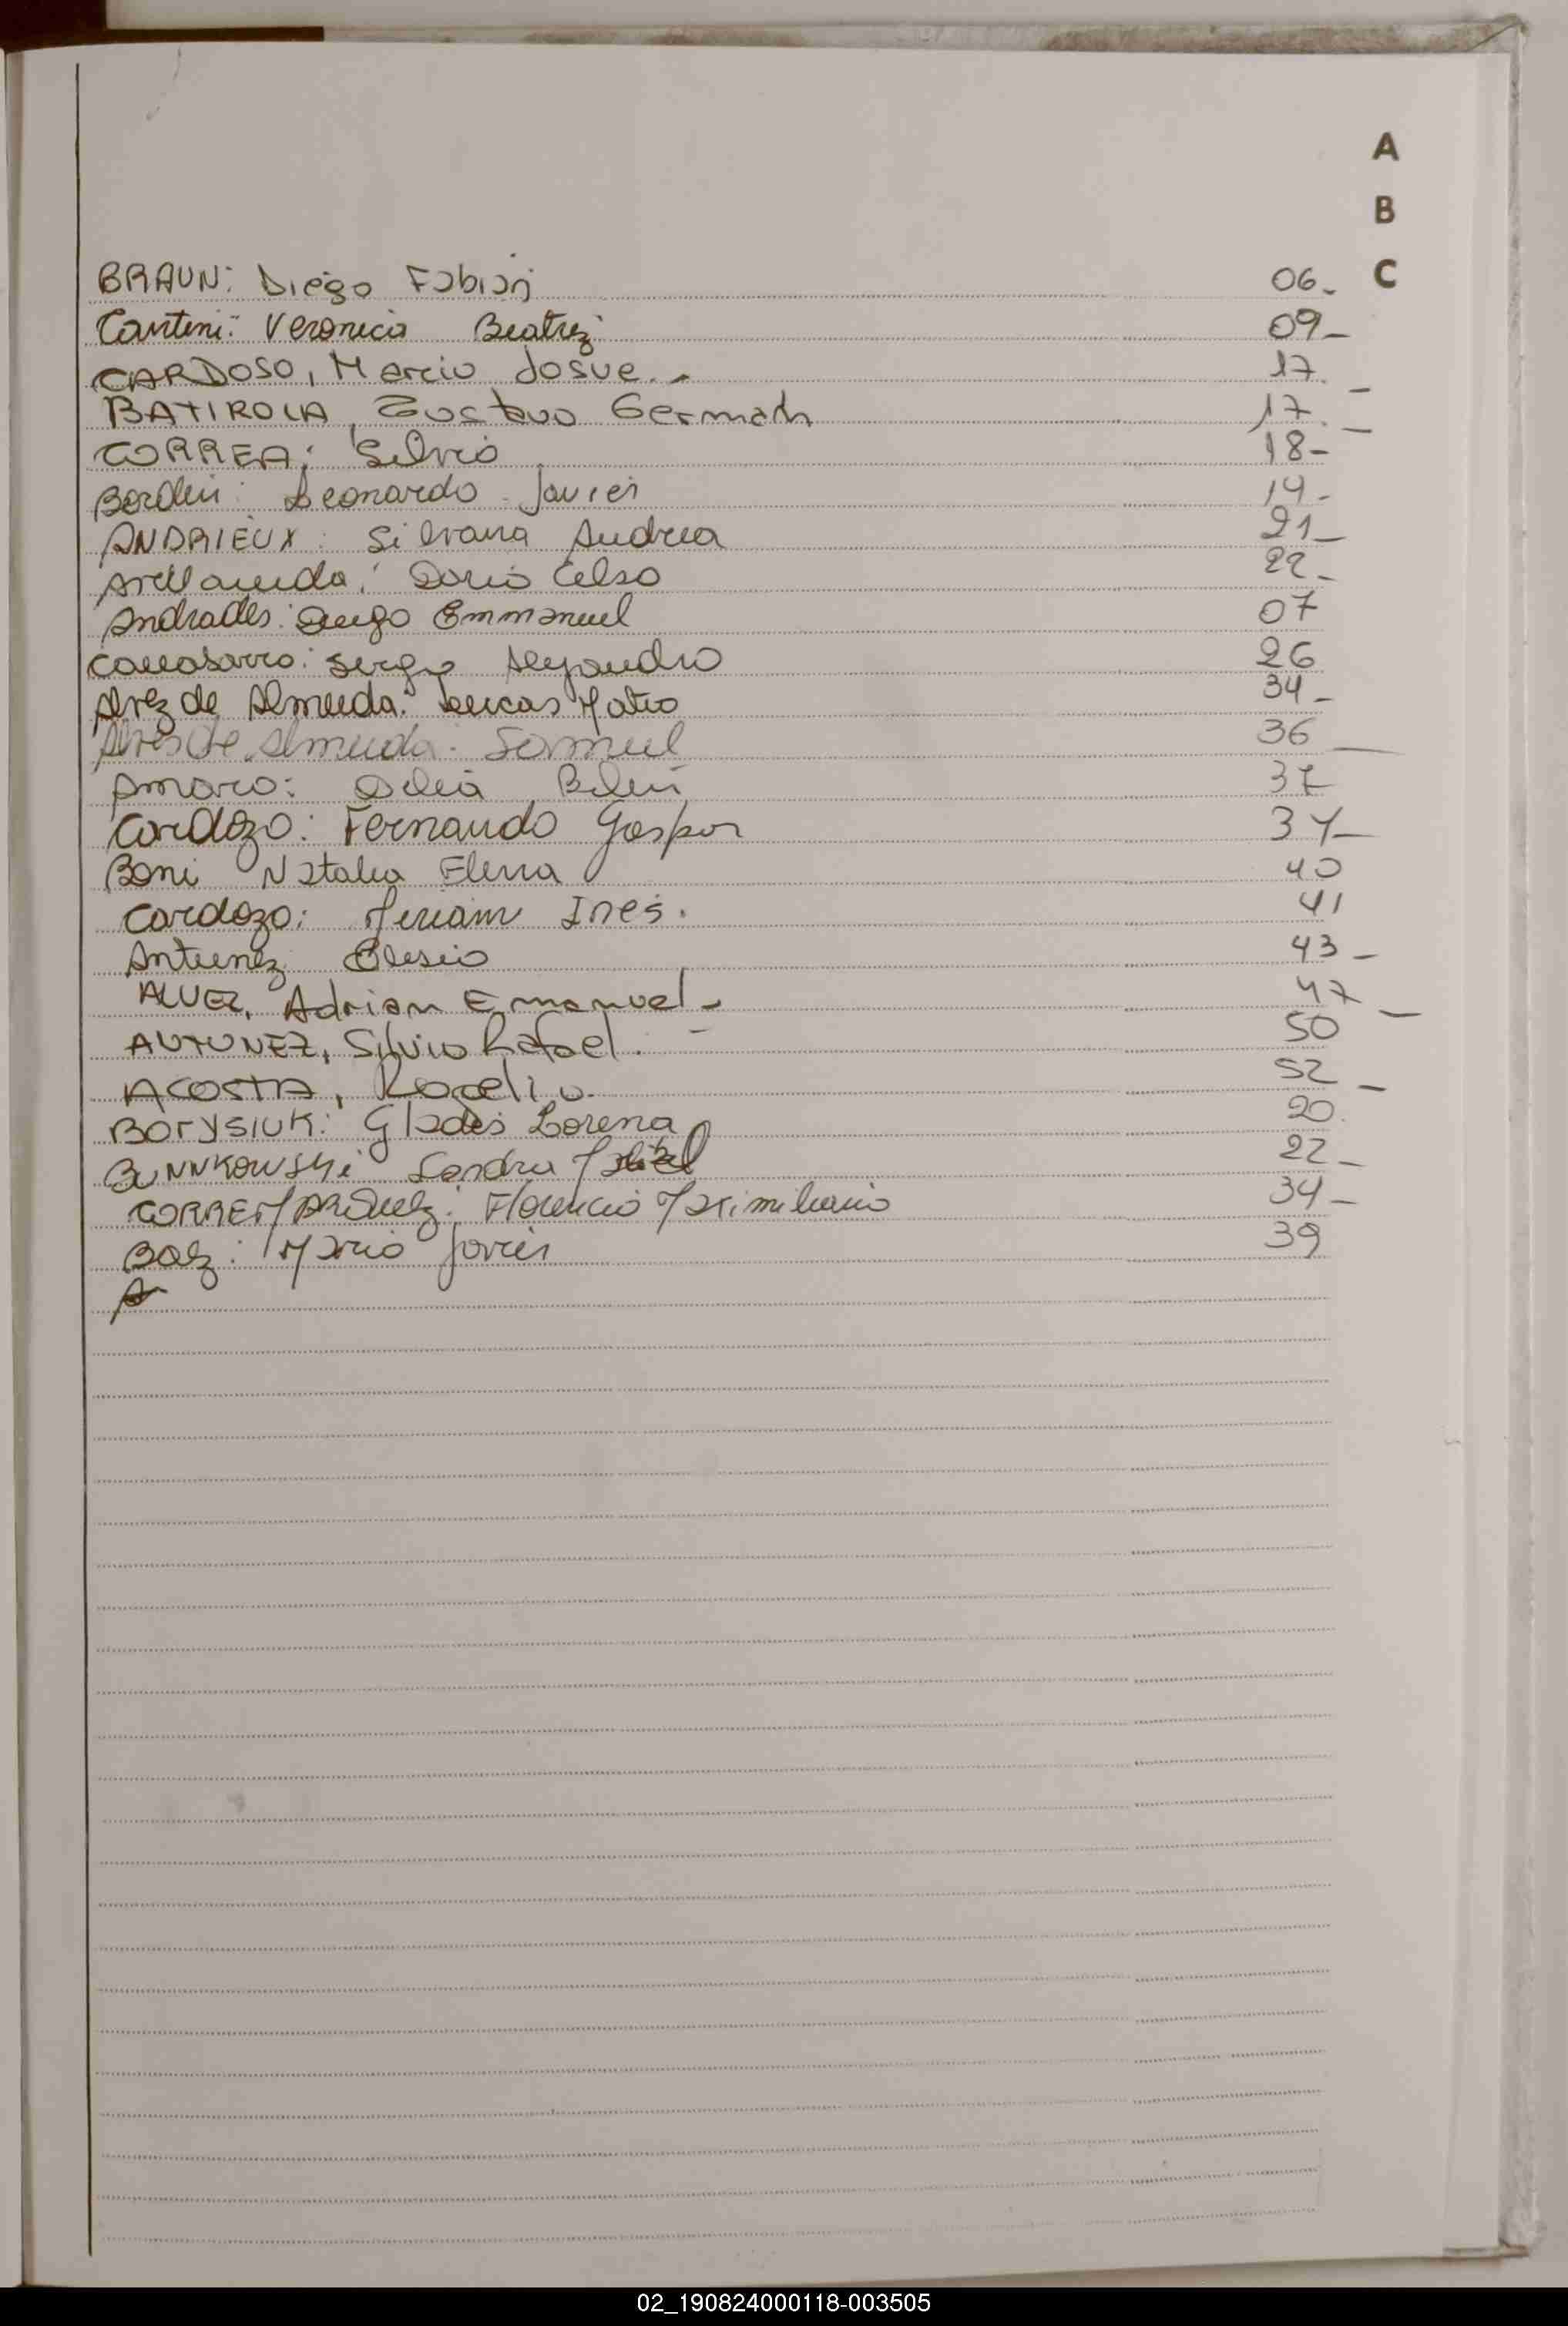 A
B
C
BRAUN: Diego Fabian 06-
Cantini: Veronica Beatriz 09-
CARDOSO, Marcio Josue.- 17.-
BATIROLA, Gustavo German 17.-
CORREA: Silvio 18-
Bordin: Leonardo Javier 19-
ANDRIEUX: Silvana Andrea 21-
Avellaneda: Dario Celso 22-
Andrades: Diego Emmanuel 07
Sergio Alejandro 26
Alvez de Almeida: Lucas Mateo 34-
Alves de Almeida: Samuel 36-
Amaro: Delia Belen 37
Cardozo: Fernando Gaspar 37-
Boni Natalia Elena 40
Cardozo: Miriam Ines. 41
Antunez Elesio 43-
ALVEZ, Adrian Emanuel- 47-
ANTUNEZ, Silvio Rafael.- 50
ACOSTA, Rogelio. 52-
BORYSIUK: Gladis Lorena 20.
Sandra 22-
CORREA Florencio Maximiliano 34-
Baez: Mario Javier 39
A
02_190824000118-003505